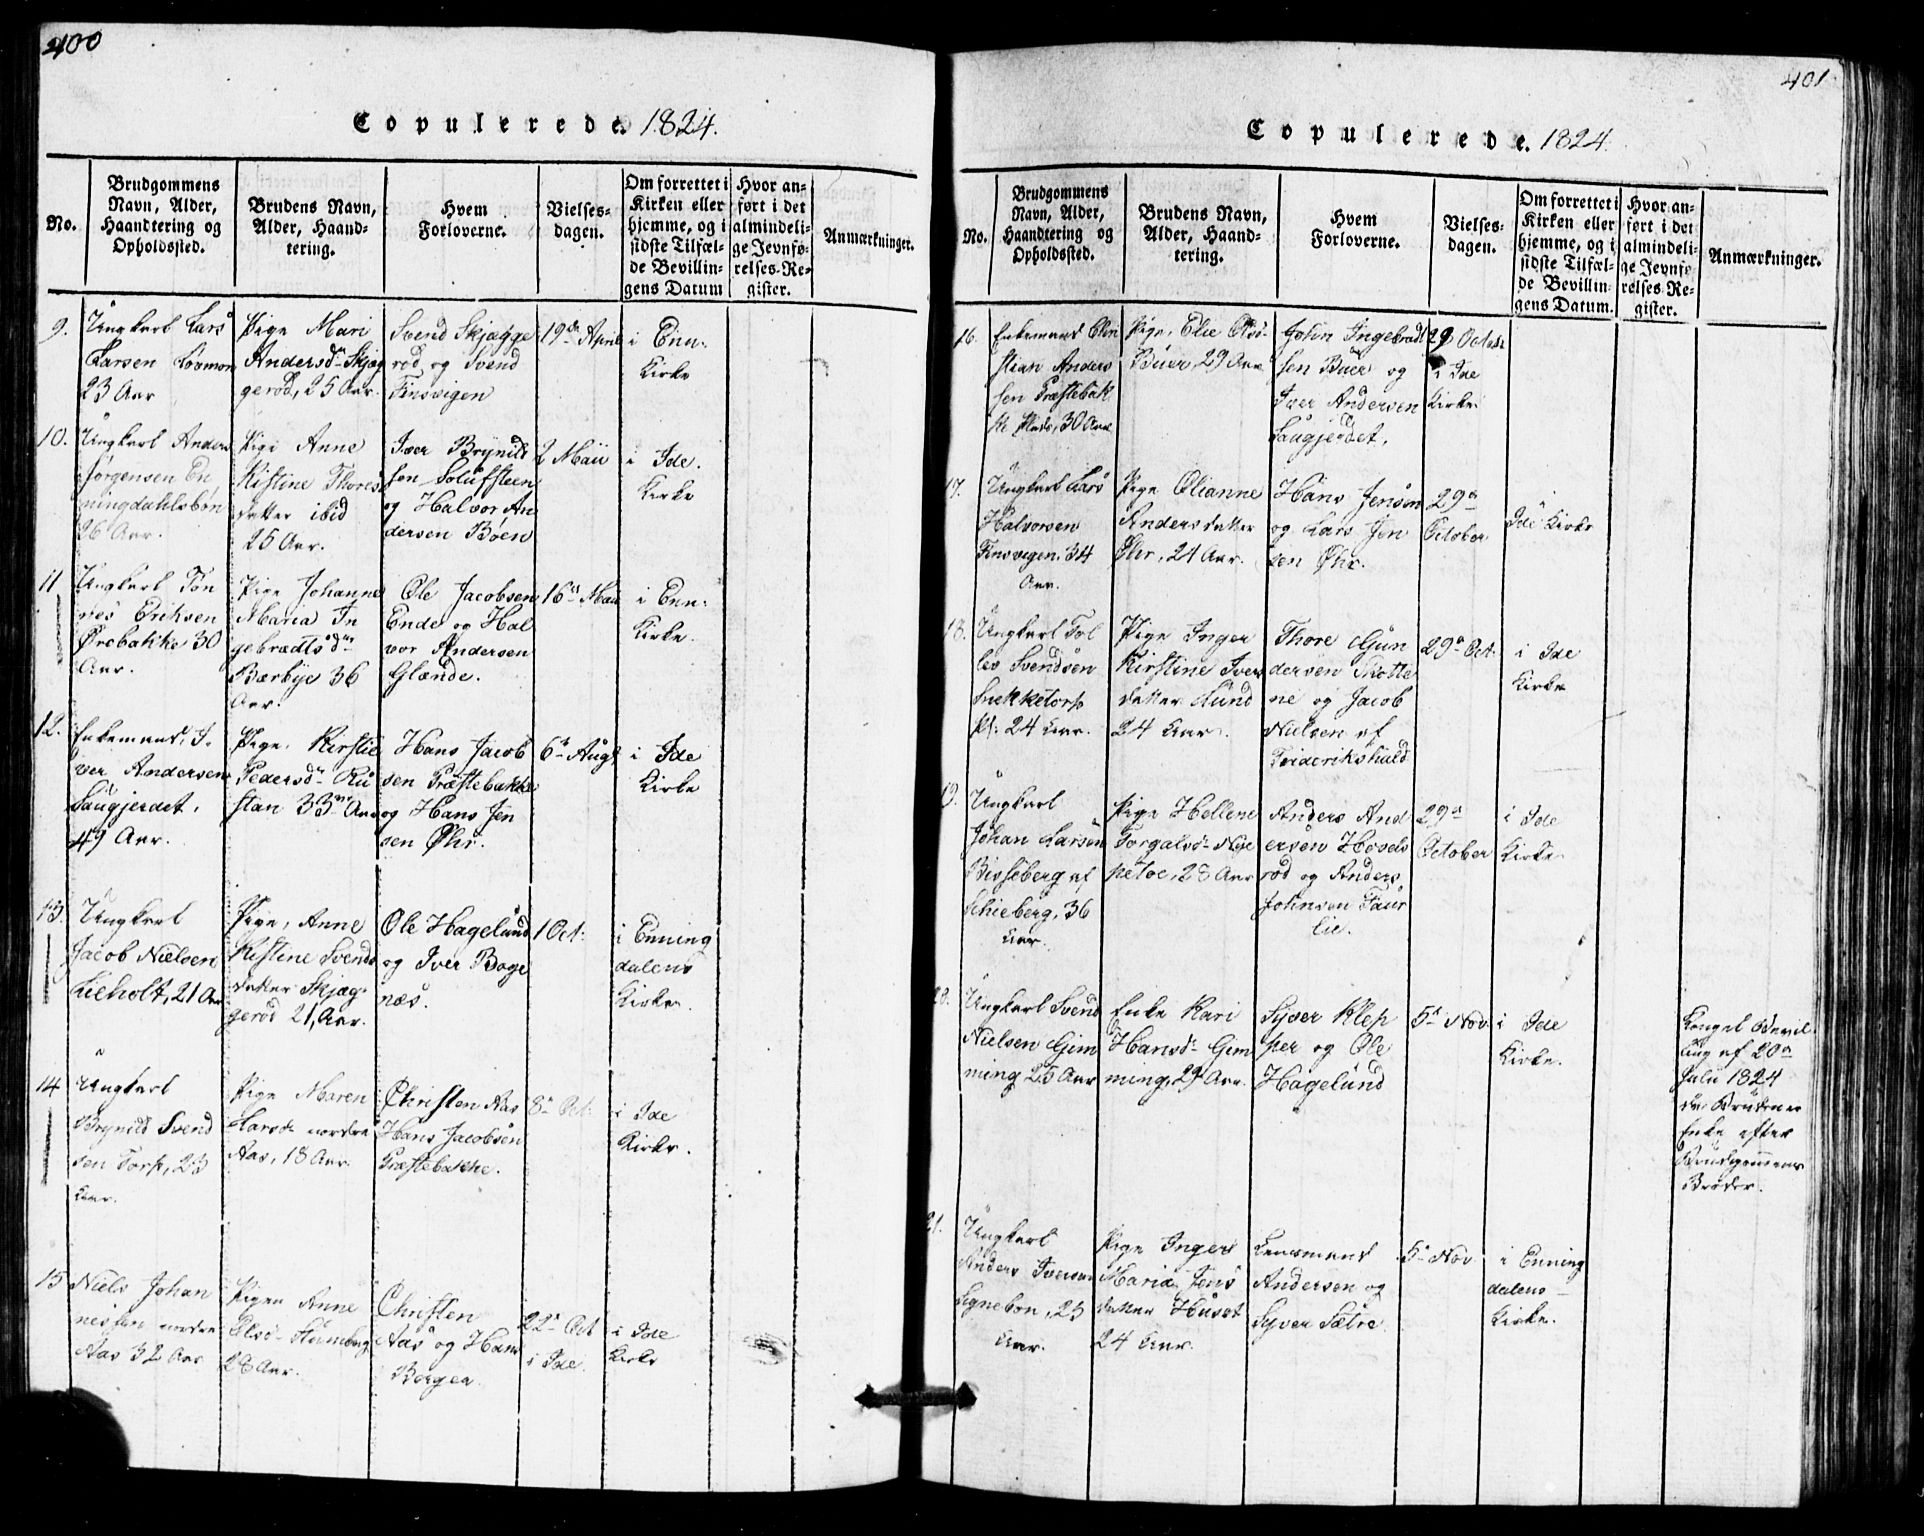 400
Copulerede. 1824.
No.
Brudgommens
Navn, Alder,
Haandtering og
Opholdssted.
Brudens Navn,
Alder, Haand-
tering.
Hvem
Forloverne.
Vielses-
dagen.
Om forrettet i
Kirken eller
hjemme, og i
sidste Tilfæl-
de Bevillin-
gens Datum
Hvor an-
ført i det
almindeli-
ge Jevnfø-
relses-Re-
gister.
Anmærkninger.
9.
Ungkarl Lars
Larsen
23 Aar
Pige Mari
Andersdr Skjæg
gerød, 25 Aar.
Svend Skjægge
rød og Svend
Finsvigen
19de April
i Enn:
Kirke
10.
Ungkarl Anders
Jørgensen En
ningdahlsbøn
26 Aar.
Pige Anne
Kistine Thores
datter ibid
25 Aar.
Iver Brynild
sen Solufsteen
og Halvor An
dersen Bøen
2 Maii
i Ide.
Kirke
11
Ungkarl Tøn
nes Eriksen
Ørebakke 30
Aar.
Pige Johanne
Maria In
gebrædtsdr
Bærbye 36
Aar.
Ole Jacobsen
Ende og Hal
vor Andersen
Glænde.
16de Maii
i Enn:
Kirke.
12.
Enkemand, I-
ver Andersen
Saugjerdet,
49 Aar.
Pige, Kirstie
Pedersdr Ru
stan 33 Aar
Hans Jacob
sen Præstebakke
og Hans Jen
sen Øhr.
6te Augt
i Ide
Kirke
13.
Ungkarl
Jacob Nielsen
Kileholt, 21 Aar
Pige, Anne
Kistine Svends
datter Skjæg
gerød 21, Aar.
Ole Hagelund
og Iver Boge
næs.
1 Oct:
i Enning
dalens
Kirke.
14
Ungkarl
Brynild Svend
sen Torp, 23
Aar.
Pige Maren
Larsdr nordre
Aas, 18 Aar.
Christen Aas
Hans Jacobsen
Præstebakke.
8de Oct:
i Ide
Kirke.
15
Niels Johan
nessen nordre
Aas 32 Aar
Pigen Anne
Olsdr
28 Aar.
Christen
Aas og Hans
Borgen
22de Oct
i Ide.
i Ide
Kirke
401
Copulerede. 1824.
No.
Brudgommens
Navn, Alder,
Haandtering og
Opholdssted.
Brudens Navn,
Alder, Haand-
tering.
Hvem
Forloverne.
Vielses-
dagen.
Om forrettet i
Kirken eller
hjemme, og i
sidste Tilfæl-
de Bevillin-
gens Datum.
Hvor an-
ført i det
almindeli-
ge Jevnfø-
relses-Re-
gister.
Anmærkninger.
16.
Enkemand Chri
stian Anders
sen Præstebak
ke Plads, 30 Aar
Pige, Elie Olsdr
Buer, 29 Aar
John Ingebradt
sen Buer og
Iver Andersen
Saugjerdet.
29 Octobr
i Ide
Kirke
17.
Ungkarl Lars
Halvorsen
Finsvigen, 34
Aar.
Pige Olianne
Anders datter
Øhr, 21 Aar.
Hans Jensen
og Lars Jen
sen Øhr.
29de
October
Ide Kirke
18.
Ungkarl Tol
lev Svendsen
Lukketorp
Pl: 24 Aar.
Pige Inger
Kirstine Ivers
datter Lund
24 Aar.
Thore Gun
dersen Skotte
ne og Jacob
Nielsen af
Friderikshald
29de Oct:
i Ide
Kirke
19.
Ungkarl
Johan Larsen
Bisseberg af
Schieberg, 36
Aar.
Pige Hellene
Torgalsdr Nye
petoe, 28 Aar
Anders And
ersen Hovels
rød og Anders
Johnsen Taur
lie.
29de
October
i Ide
Kirke.
20.
Ungkarl Svend
Nielsen Gim
ming 25 Aar
Enke Kari
Hansdr Gim
ming, 29 Aar.
Syver Klep
per og Ole
Hagelund
5te Nov
i Ide
Kirke.
Kongel Bevil
ling af 20de
Julii 1824
da Bruden er
Enke efter
Brudgommens
Broder.
21.
Ungkarl
Anders Iversen
Signebøn, 25
Aar.
Pige Inger
Maria Jens
datter Huset
24 Aar.
Lensmand
Andersen og
Syver Sætre
5te Nov
i Enning
dalens
Kirke.